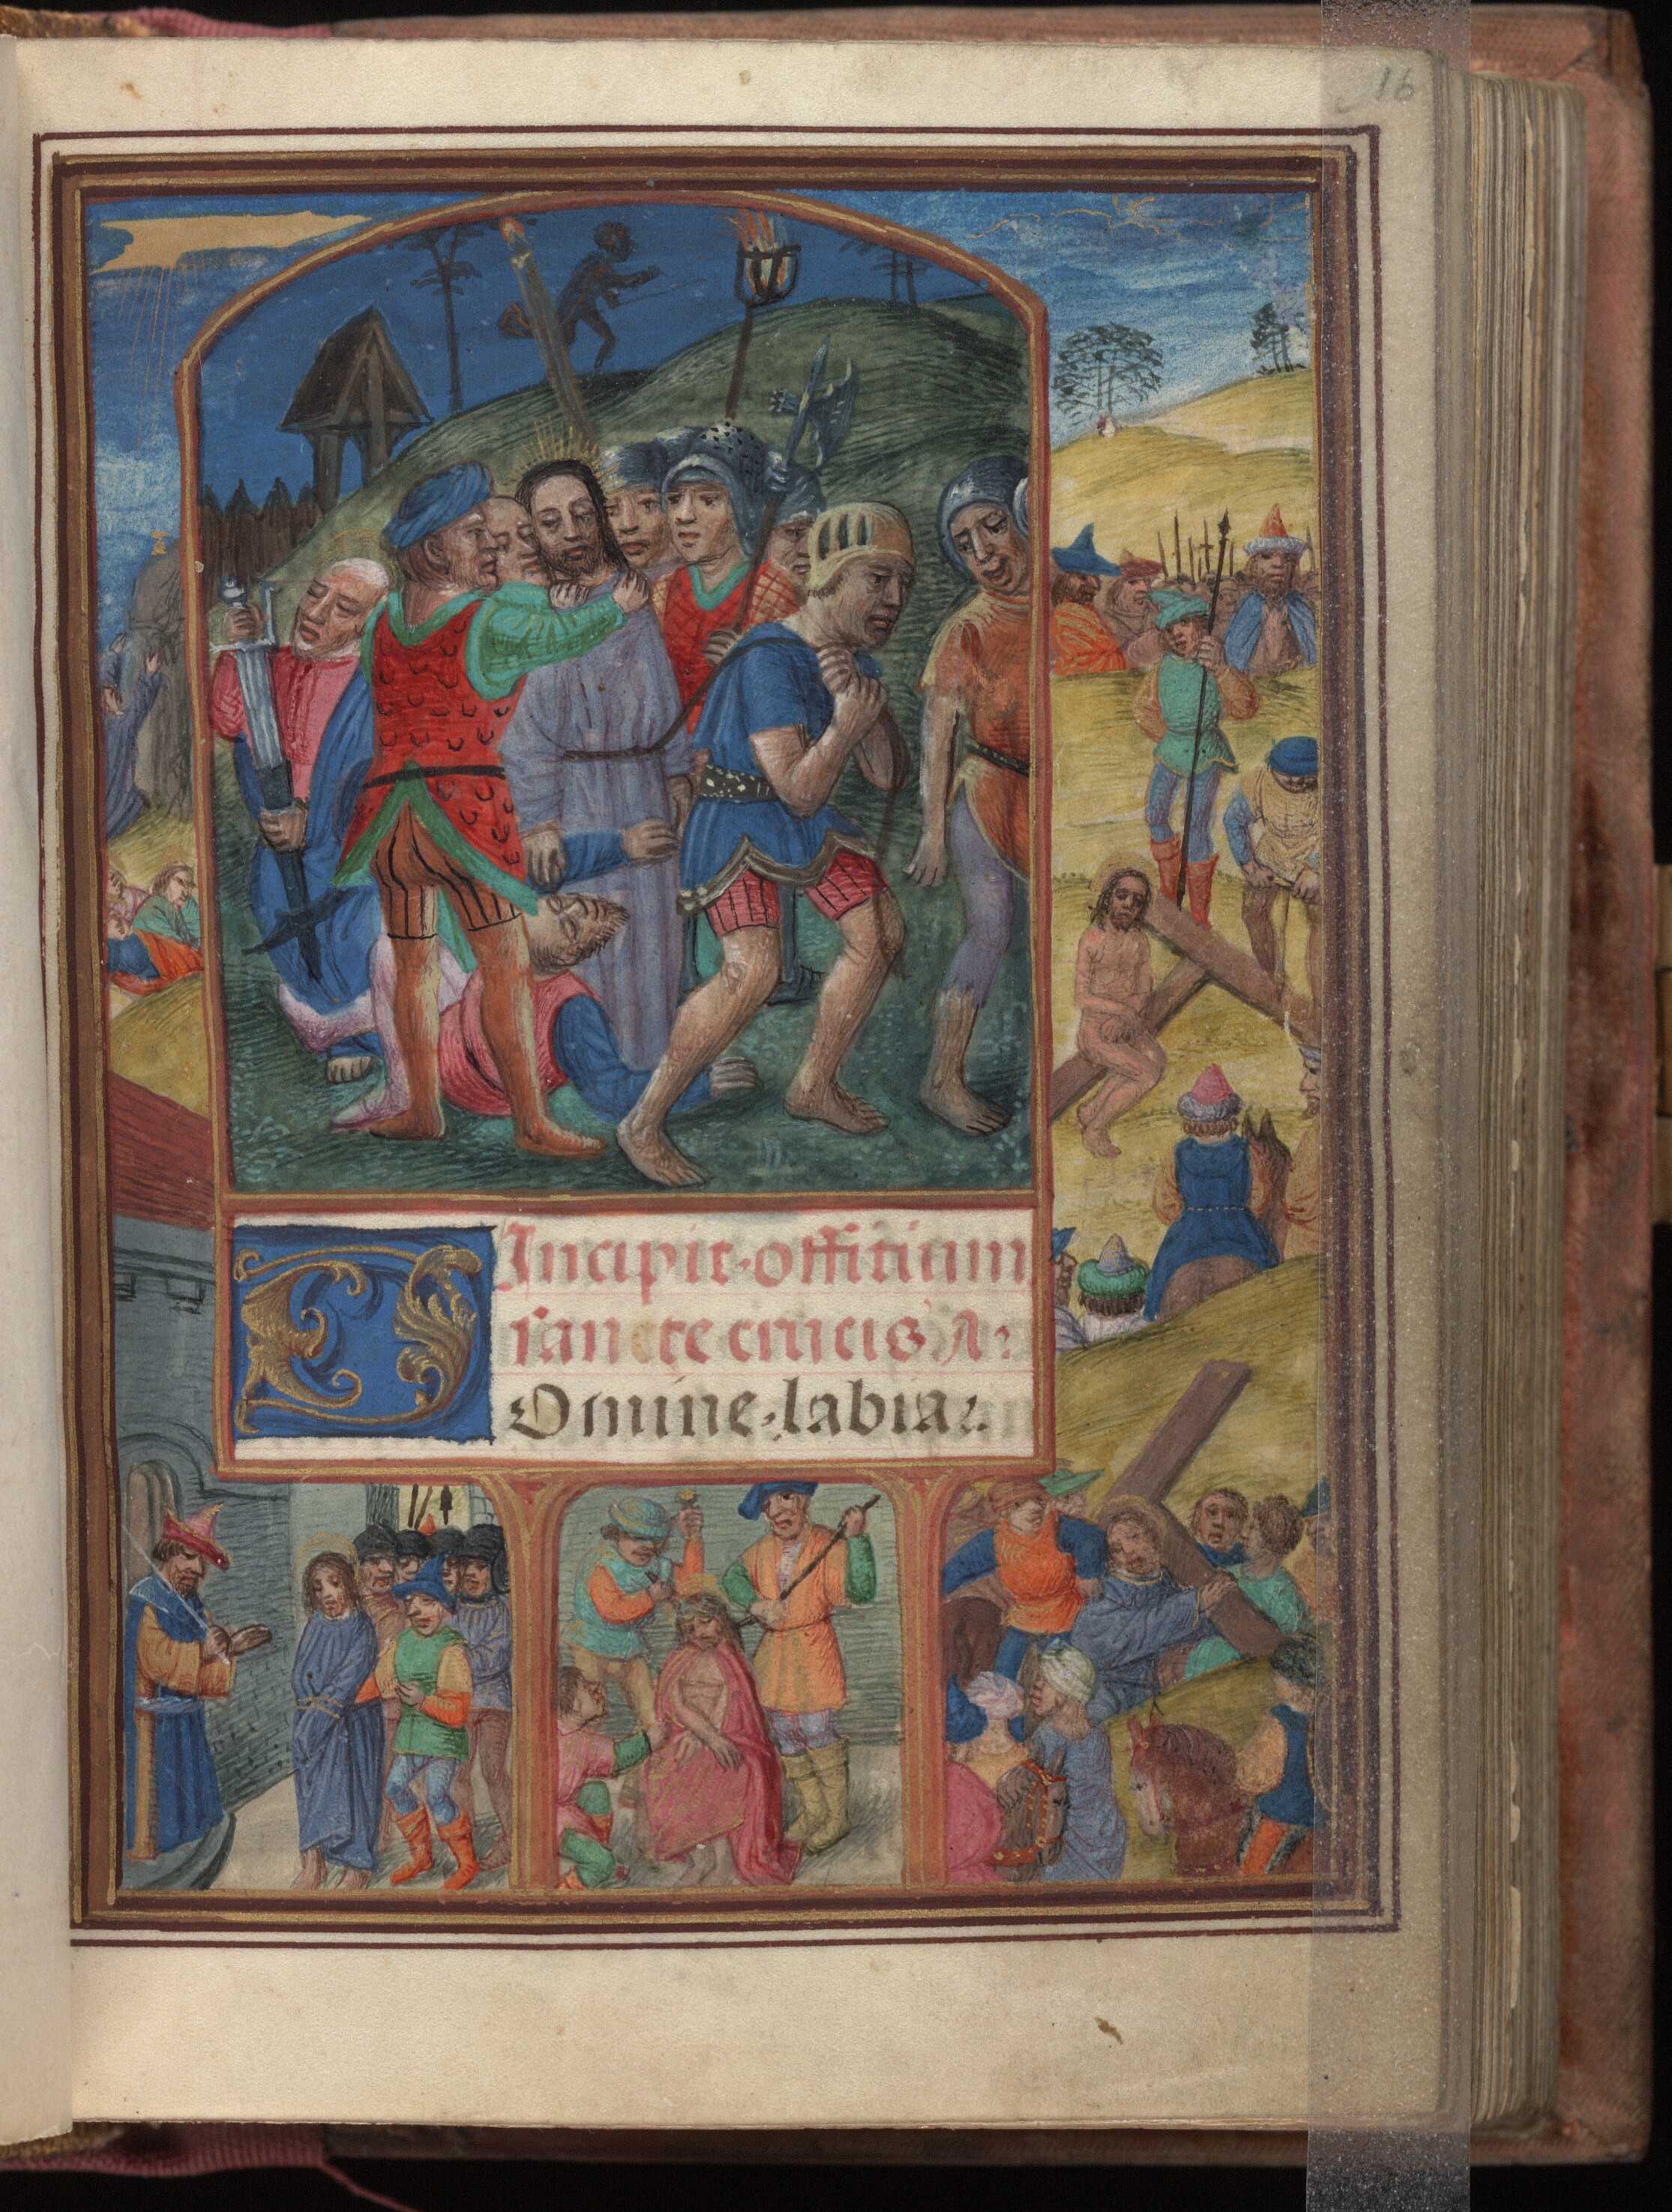 16
Incipit officium
sancte crucis A:
Domine labia: